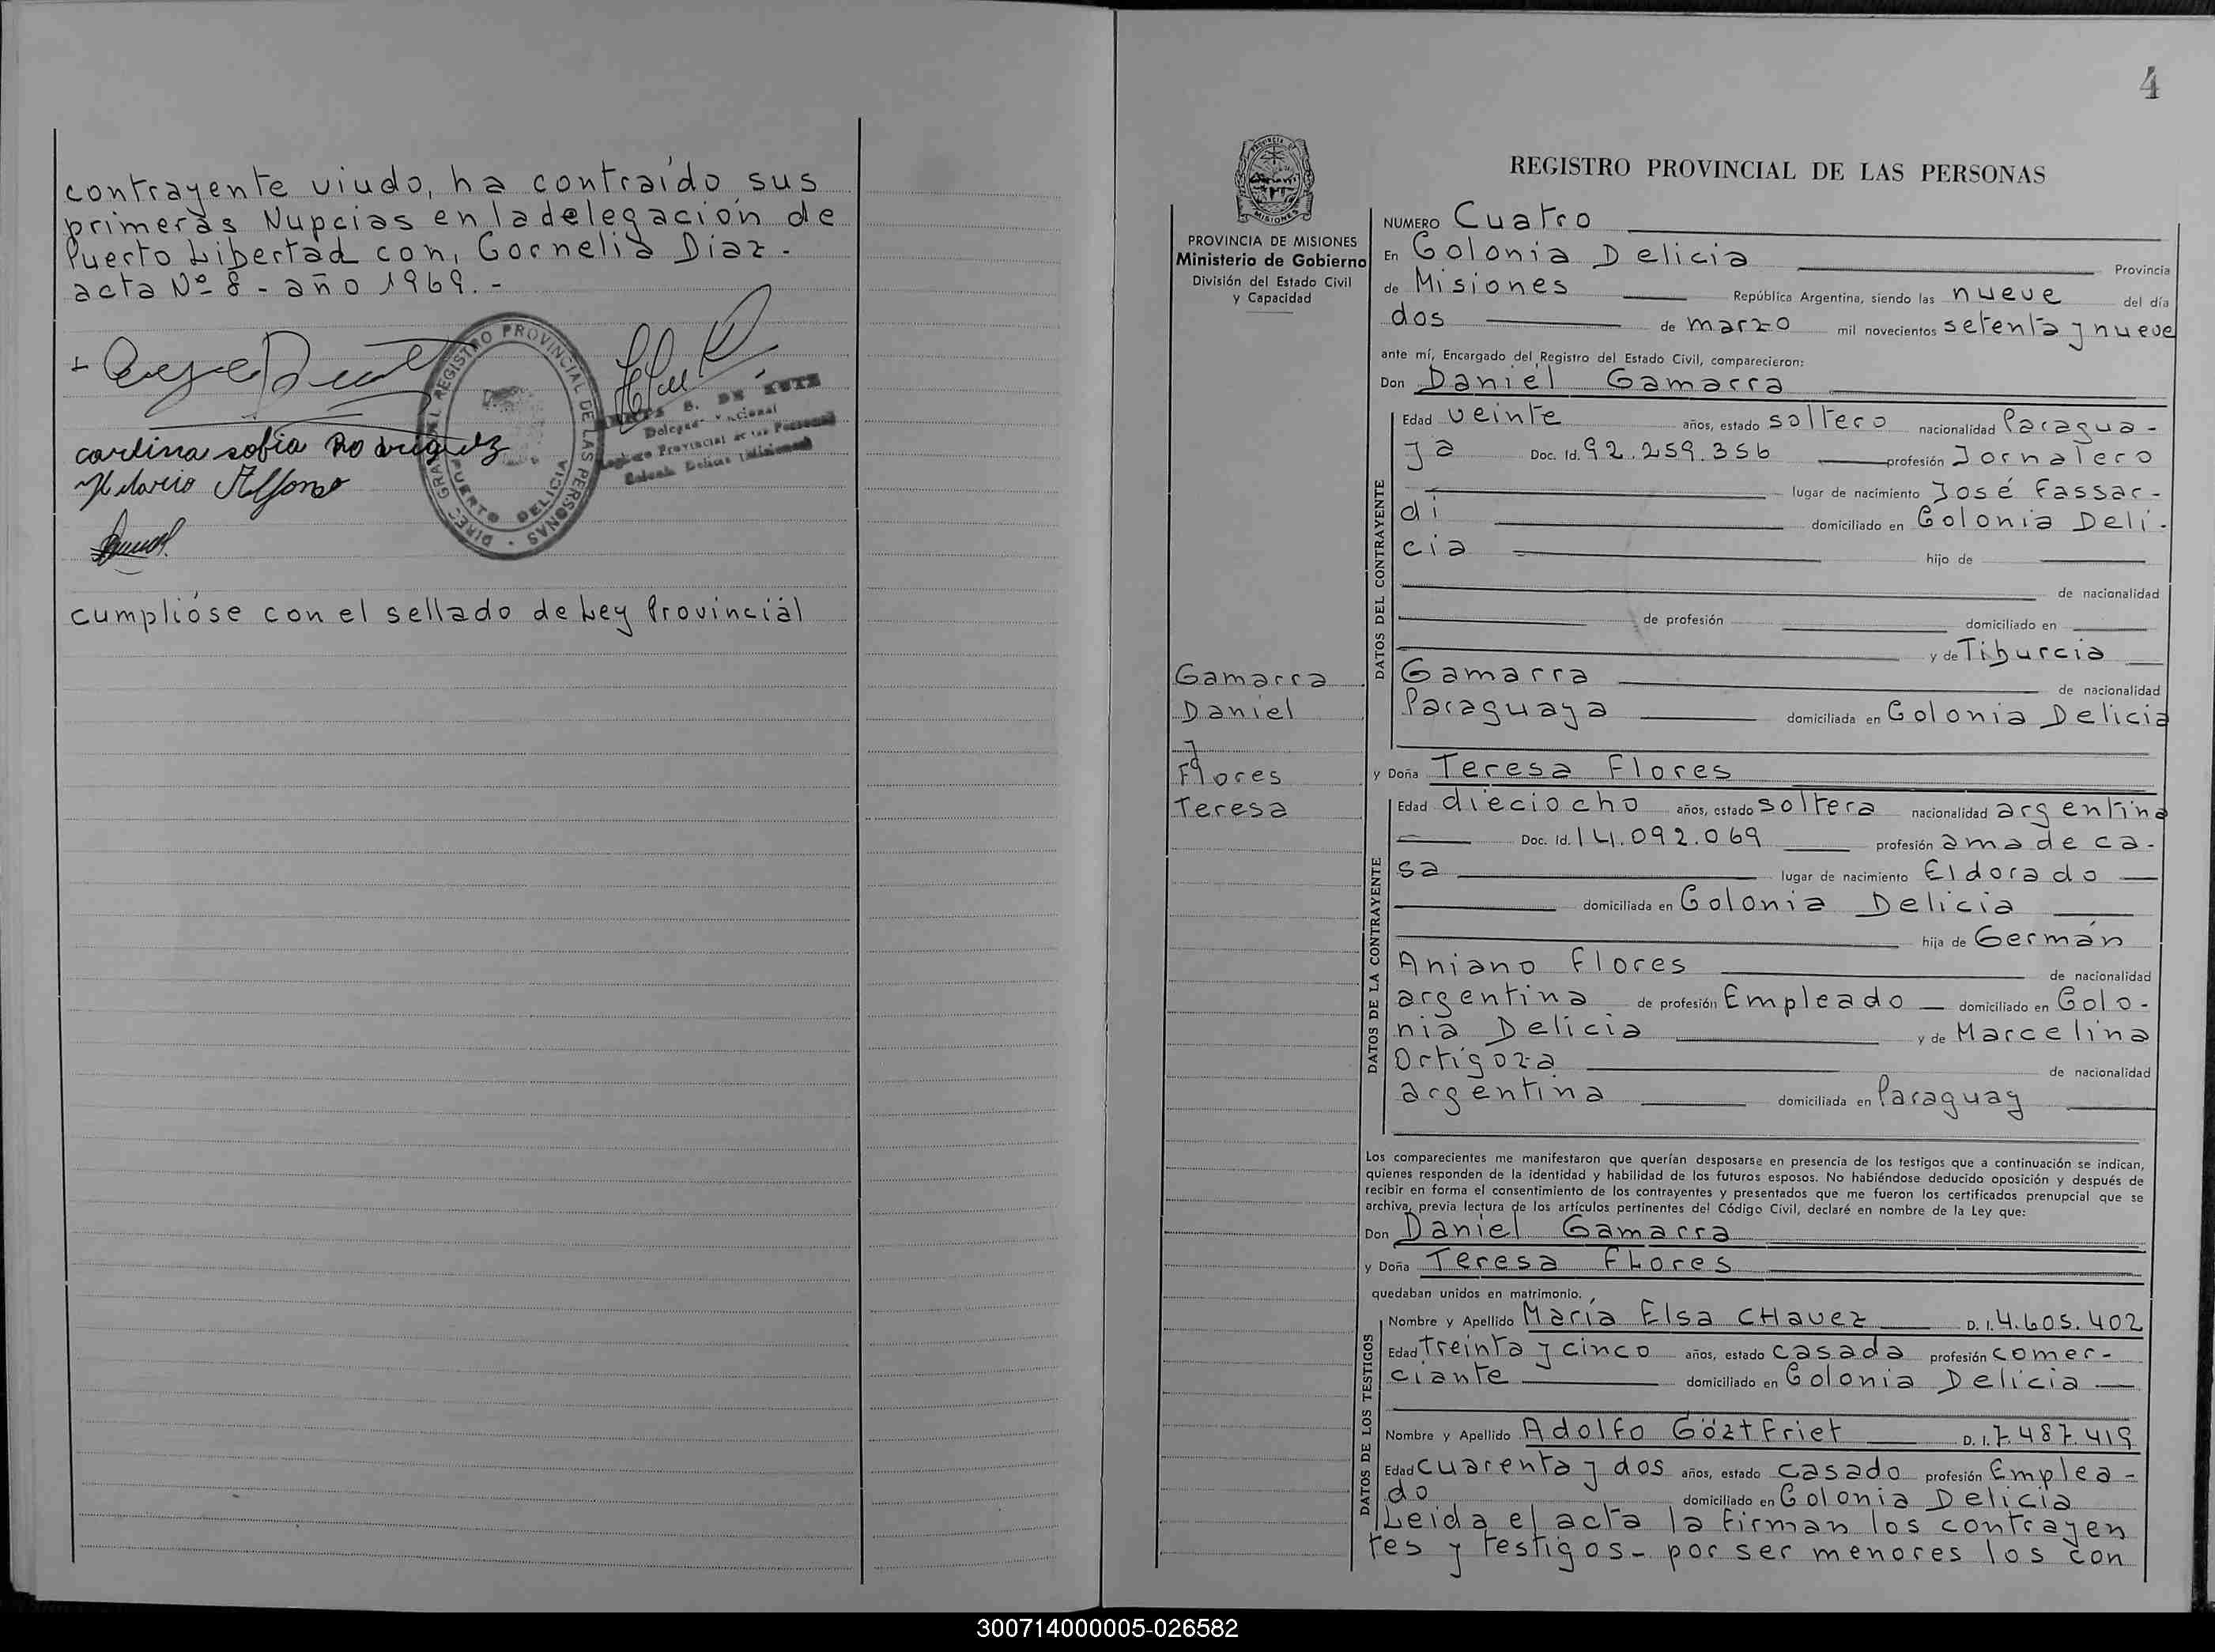 contrayente viudo, ha contraído sus
primeras Nupcias en la delegación de
Puerto Libertad con, Cornelia Diaz.
acta Nº 8 - año 1969. -
carlina sofia Rodriguez
Hilario Alfonso
DIREC. GRAL. DEL REGISTRO PROVINCIAL DE LAS PERSONAS
PUERTO DELICIA
B. DE KUTZ
Registro Provincial de las Personas
Colonia Delicia (Misiones)
cumplióse con el sellado de Ley Provincial
4
PROVINCIA DE MISIONES
Ministerio de Gobierno
División del Estado Civil
y Capacidad
Gamarra
Daniel
y
Flores
Teresa
REGISTRO PROVINCIAL DE LAS PERSONAS
NUMERO Cuatro
En Colonia Delicia Provincia
de Misiones República Argentina, siendo las nueve del día
dos de marzo mil novecientos setenta y nueve
ante mí, Encargado del Registro del Estado Civil, comparecieron:
Don Daniel Gamarra
DATOS DEL CONTRAYENTE
Edad veinte años, estado soltero nacionalidad Paragua-
ya Doc. Id. 92.259.356 profesión Jornalero
lugar de nacimiento José Fassar-
di domiciliado en Colonia Deli-
cia hijo de
de nacionalidad
de profesión domiciliado en
y de Tiburcia
Gamarra de nacionalidad
Paraguaya domiciliada en Colonia Delicia
y Doña Teresa Flores
DATOS DE LA CONTRAYENTE
Edad dieciocho años, estado soltera nacionalidad argentina
Doc. Id. 14.092.069 profesión ama de ca-
sa lugar de nacimiento Eldorado
domiciliada en Colonia Delicia
hija de Germán
Aniano Flores de nacionalidad
argentina de profesión Empleado domiciliado en Colo-
nia Delicia y de Marcelina
Ortigoza de nacionalidad
argentina domiciliada en Paraguay
Los comparecientes me manifestaron que querían desposarse en presencia de los testigos que a continuación se indican,
quienes responden de la identidad y habilidad de los futuros esposos. No habiéndose deducido oposición y después de
recibir en forma el consentimiento de los contrayentes y presentados que me fueron los certificados prenupcial que se
archiva, previa lectura de los artículos pertinentes del Código Civil, declaré en nombre de la Ley que:
Don Daniel Gamarra
y Doña Teresa Flores
quedaban unidos en matrimonio.
DATOS DE LOS TESTIGOS
Nombre y Apellido María Elsa CHavez D. I. 4.605.402
Edad treinta y cinco años, estado casada profesión comer-
ciante domiciliado en Colonia Delicia
Nombre y Apellido Adolfo Göztfriet D. I. 7.487.419
Edad cuarenta y dos años, estado casado profesión Emplea-
do domiciliado en Colonia Delicia
Leida el acta la firman los contrayen
tes y testigos- por ser menores los con
300714000005-026582